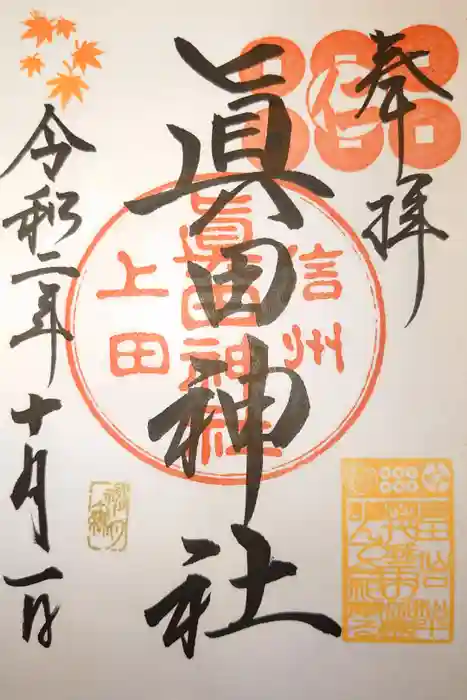 奉拝
仁
眞田神社
信州
眞田神社
上田
令和二年十月一日